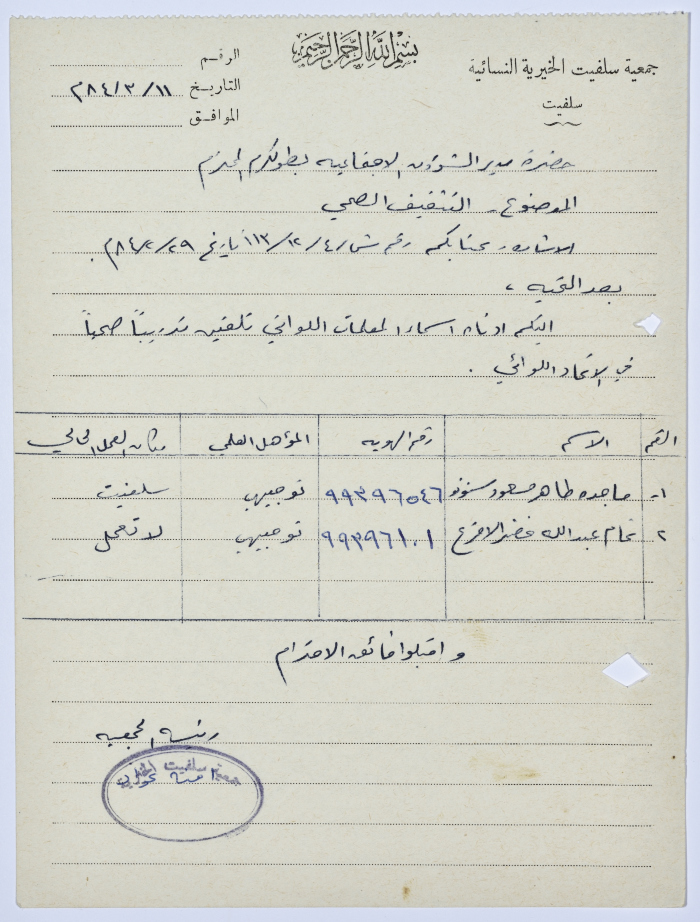 بسم الله الرحمن الرحيم
جمعية سلفيت الخيرية النسائية
سلفيت
الرقم
التاريخ ١١/٣/٨٤م
الموافق
حضرة مدير الشؤون الاجتماعيه بطولكرم المحترم
الموضوع - التثقيف الصحي
الاشاره - كتابكم رقم ش/٤/١٢/١١٣ تاريخ ٢٩/٢/٨٤م.
بعد التحيه ،
اليكم ادناه اسماء المعلمات اللواتي تلقين تدريباً صحياً
في الاتحاد اللوائي .
الرقم الاسم رقم الهويه المؤهل العلمي مكان العمل الحالي
١- ماجده طاهر مسعود ٩٩٣٩٦٥٤٦ توجيهي سلفيت
٢ تمام عبدالله خضر الاقرع ٩٩٣٩٦١٠١ توجيهي لا تعمل
واقبلوا فائق الاحترام
رئيسة الجمعيه
جمعية سلفيت